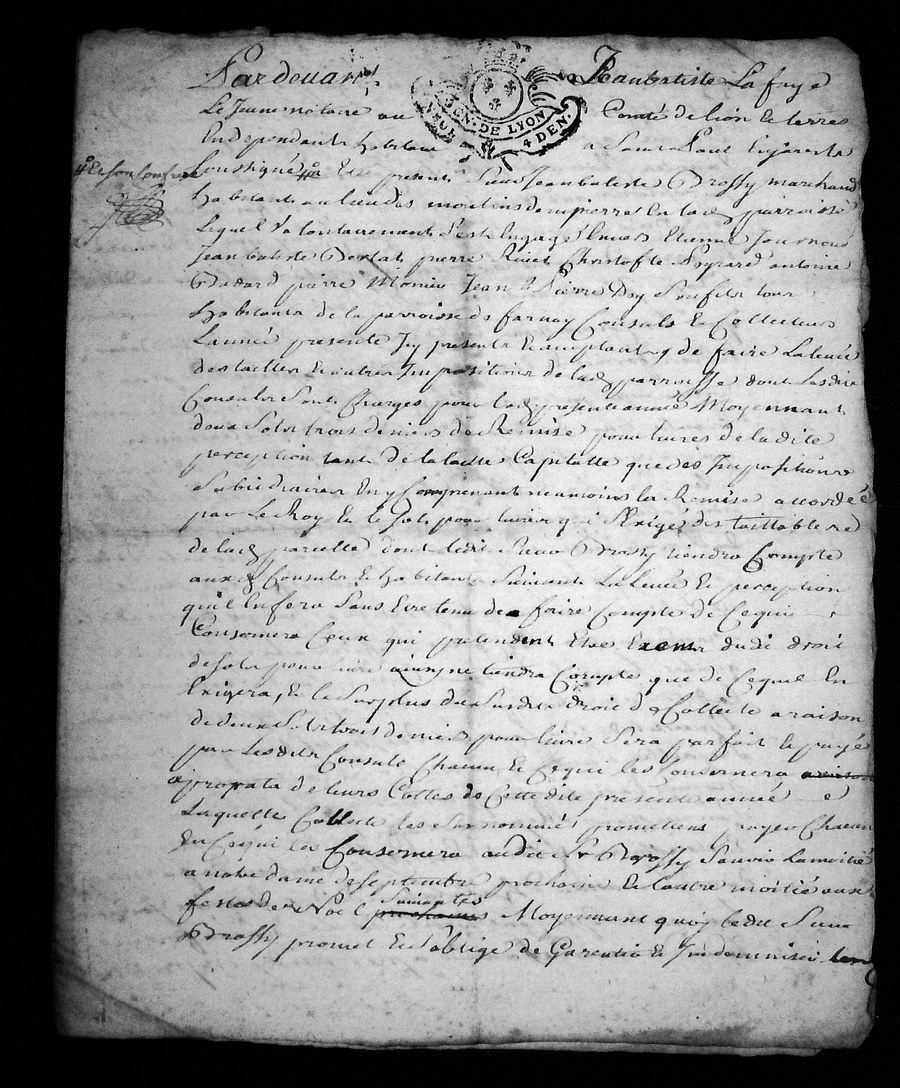 Pardevant Jeanbatiste Lafaye
Le Jeune notaire au Comté de lion et terres
GEN. DE LYON
4 DEN.
En dependants habitant a Saint Paul Enjarests
Soussigné Et present Sieur Jeanbatiste Brossy marchand
# Et son Confrere
habitant au lieu des moulins dampierre En lad parroisse
Lequel Volontairement s'est Engagé Envers Etienne Journoud
Jeanbatiste Bertat pierre Rivet Christofle Peyrard antoine
pierre Monier Jean & Pierre Son fils tous
habitants de la parroisse de farnay Consuls et Collecteurs
Lannée presente Icy presents et aceptants de faire La levée
des tailles et autres Impositions de lad parroisse dont Lesdits
Consuls Sont Chargés pour lad presente année Moyennant
deux Sols trois deniers de Remise pour livres de ladite
perception tant de la taille Capitation que des Impositions
Subsidiaires En y Comprenant neanmoins la Remise accordée
par Le Roy Et le Sols pour livre qui s'Exige des taillables
de lad parcelle dont ledit Sieur Brossy tiendra Compte
aux Consuls et habitants Suivant La levée et perception
quil En fera Sans Etre tenu de faire Compte de Cequi
Consernera Ceux qui pretendent Etre Exempts dudit droit
de sols pour livre ains ne tiendra Compte que de Cequil En
Exigera, Et le Surplus du Susdit droit de Collecte a raison
de deux Sols trois deniers pour livre Sera parfait et payé
par Lesdits Consuls Chacun En Cequi les Consernera
aprorata de leurs Cottes de Cette dite presente année
Laquelle Collecte les Surnommés promettent payer Chacun
En Cequi les Consernera audit Sr Brossy Savoir La moitié
a notre dame de Septembre prochaine Et lautre moitié aux
festes de Noel Suivantes Moyennant quoy ledit Sieur
Brossy promet Et s'oblige de Garentir Et Indemniser